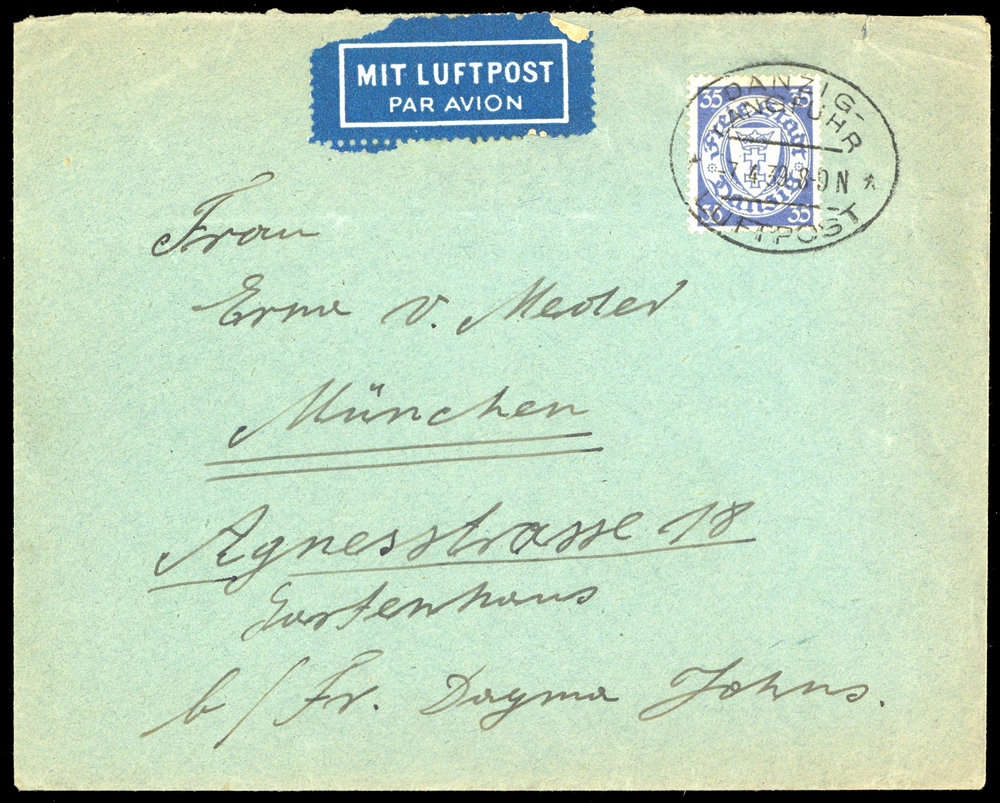 MIT LUFTPOST
PAR AVION
35 35
Freie Stadt
Danzig
35 35
DANZIG-
LANGFUHR
-7.4.39.8-9N
LUFTPOST
Frau
Erme v. Meder
München
Agnesstrasse 18
Gartenhaus
b/Fr. Dagma Johns.